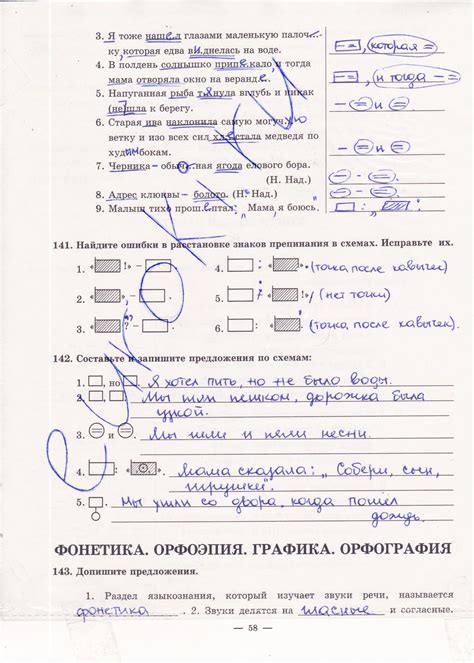 3. Я тоже нашел глазами маленькую палоч-
ку, которая едва виднелась на воде.
, которая =
4. В полдень солнышко припекало, и тогда
мама отворяла окно на веранде.
, и тогда – =
5. Напуганная рыба тянула вглубь и никак
(не) шла к берегу.
– = и =
6. Старая ива наклонила самую могучую
ветку и изо всех сил хлестала медведя по
худым бокам.
– = и =
7. Черника – обычная ягода елового бора.
(Н. Над.)
8. Адрес клюквы – болото. (Н. Над.)
9. Малыш тихо прошептал: „Мама, я боюсь."
141. Найдите ошибки в расстановке знаков препинания в схемах. Исправьте их.
1. « !» –
4. : « » (точка после кавычек)
2. « , –
5. : « » (нет точки)
3. « ?» –
6. : « » (точка, после кавычек).
142. Составьте и запишите предложения по схемам:
1. , но . Я хотел пить, но не было воды.
2. , . Мы шли пешком, дорожка была
узкой.
3. = и = . Мы шли и пели песни.
4. : « ». Мама сказала: „Собери, сын,
игрушки".
5. Мы ушли со двора, когда пошел
дождь.
ФОНЕТИКА. ОРФОЭПИЯ. ГРАФИКА. ОРФОГРАФИЯ
143. Допишите предложения.
1. Раздел языкознания, который изучает звуки речи, называется
фонетика . 2. Звуки делятся на гласные и согласные.
— 58 —